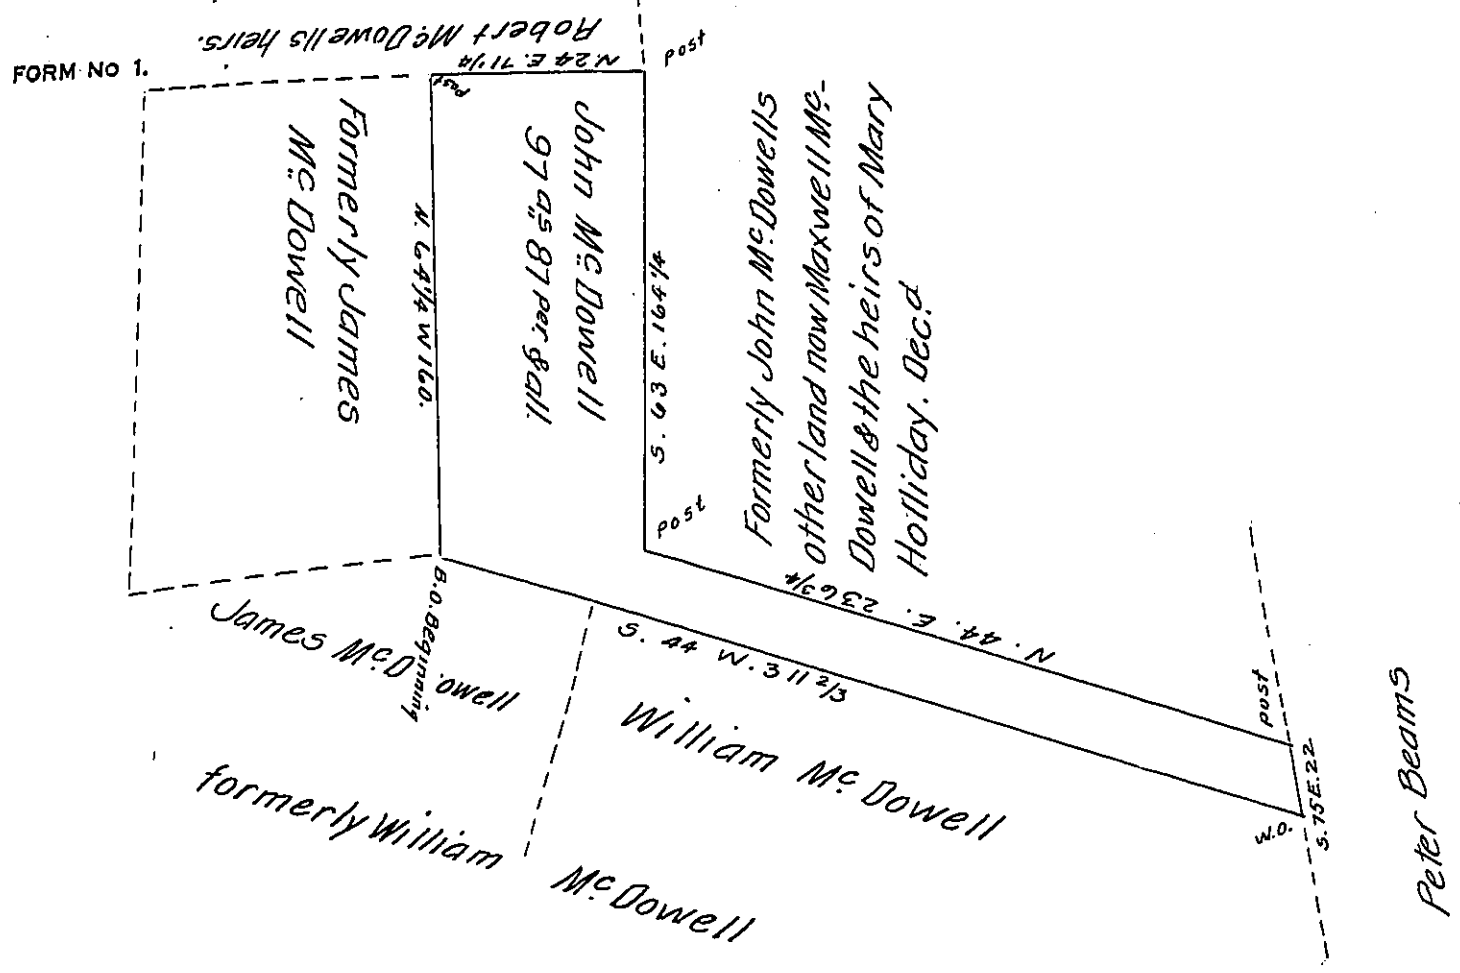 Robert McDowells heirs.
FORM NO 1.
N. 24 E. 71 1/4
post
Post
Formerly James
McDowell
N. 64 1/4 W 160.
John McDowell
97 as 87 per. & all.
S. 63 E. 164 1/4
Formerly John McDowells
other land now Maxwell Mc-
Dowell & the heirs of Mary
Holliday. Dec.d
post
N. 44. E. 236 3/4
B.O. Beginning
James McDowell
S. 44 W. 311 2/3
William McDowell
formerly William McDowell
post
W.O.
S. 75 E. 22
Peter Beams